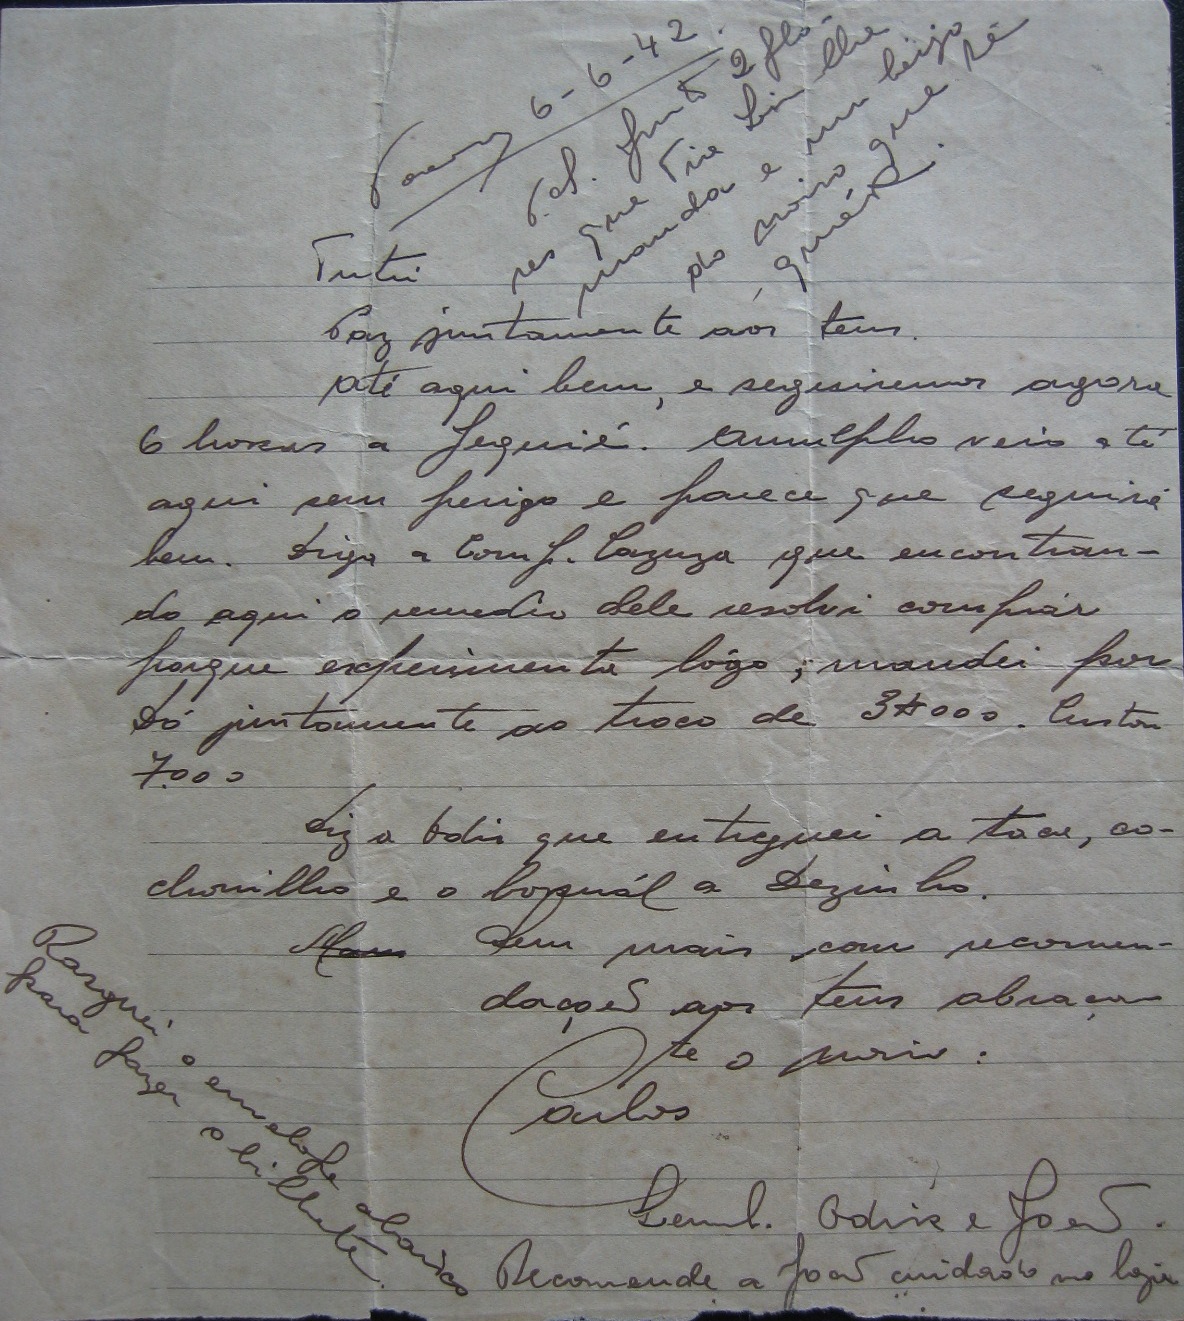 6-6-42.
P.S. Junto 2 flo-
res que Tia Lili lhe
manda e um beijo
do noivo que té
quér.
Tutu
Paz juntamente aos teus.
Até aqui bem, e seguiremos agora
6 horas a Jequié. Arnulpho veio até
aqui sem perigo e parece que seguirá
bem. Diga a Comp. Cazuza que encontran-
do aqui o remedio dele resolvi comprár
porque experimenta lógo; mandei por
Ló juntamente ao troco de 3$000. Custou
7.000
Diz a Odir que entreguei a taca, co-
chonilho e o bornál a Dezinho.
Sem mais com recomen-
dações aos teus abraça-
te o noivo:
Carlos
Lemb. Odir e João.
Recomende a João cuidado na loja
Rasguei o envelope abaixo
para fazer o bilhete.